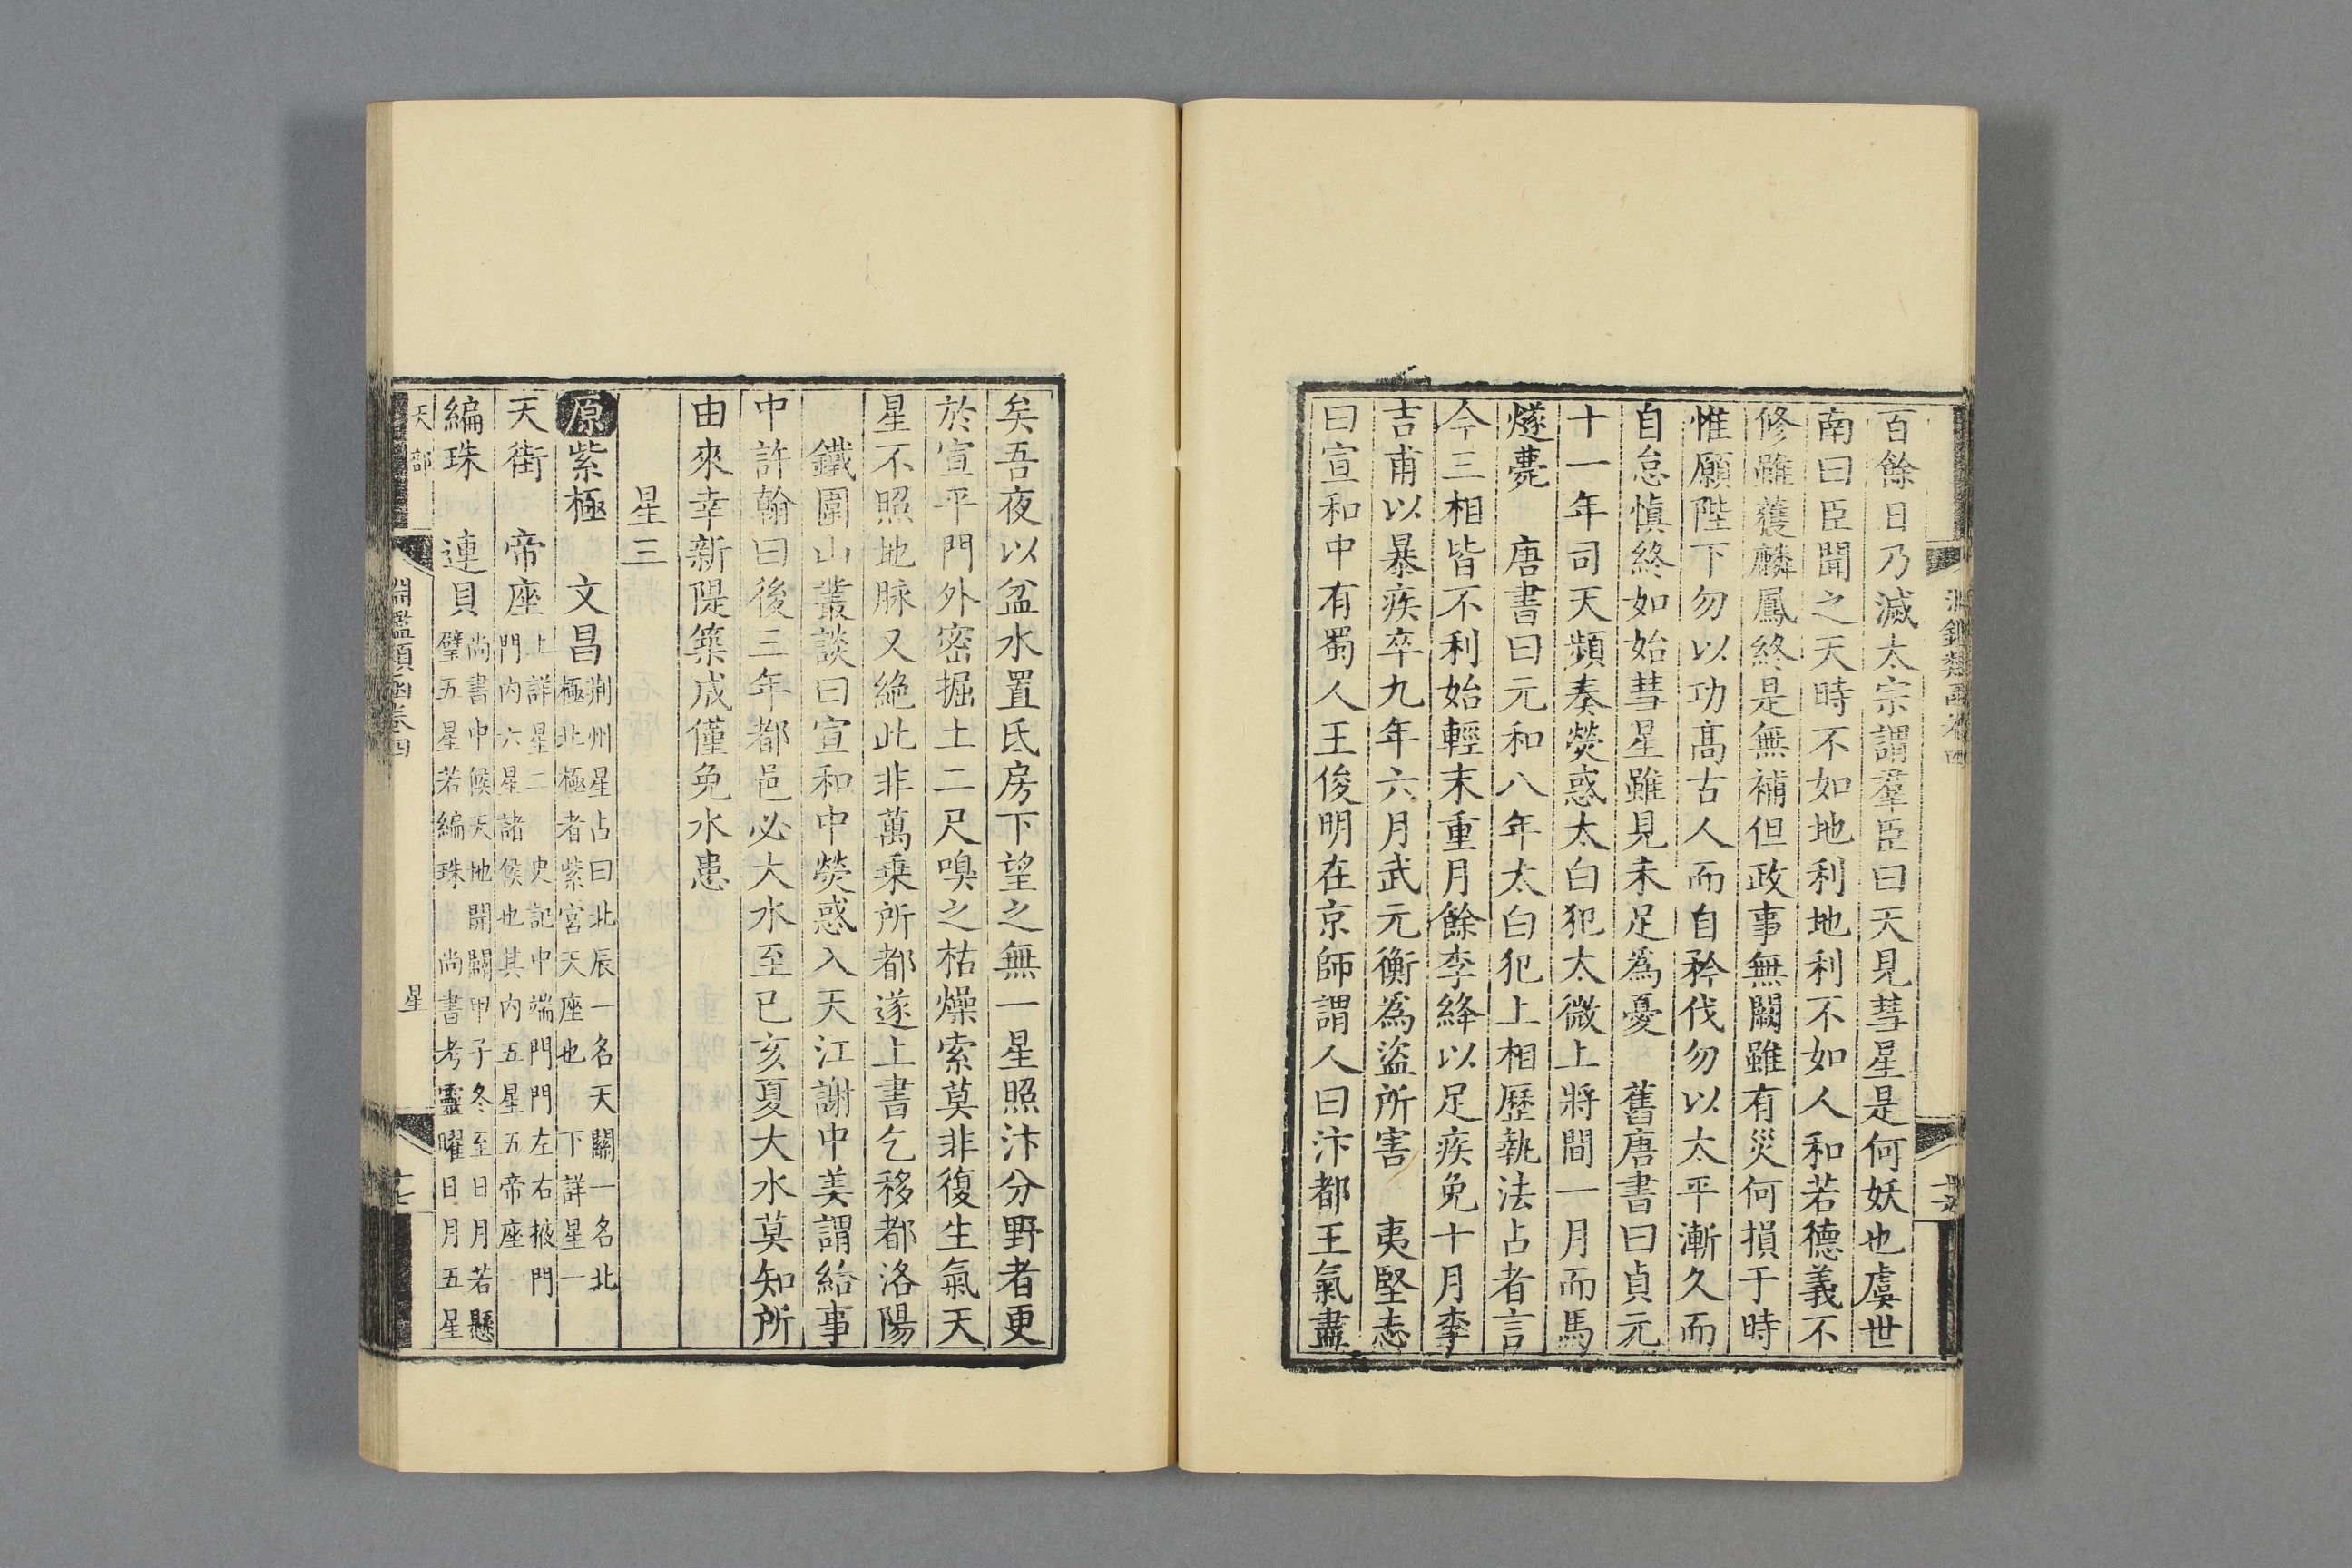 百餘日乃滅太宗謂羣臣曰天見彗星是何妖也虞世
南曰臣聞之天時不如地利地利不如人和若德義不
修雖獲麟鳳終是無補但政事無闕雖有災何損于時
惟願陛下勿以功髙古人而自矜伐勿以太平漸久而
自怠愼終如始彗星雖見未足爲憂　舊唐書曰貞元
十一年司天頻奏熒惑太白犯太微上將間一月而馬
燧薨　唐書曰元和八年太白犯上相歷執法占者言
今三相皆不利始輕末重月餘李絳以足疾免十月李
吉甫以暴疾卒九年六月武元衡爲盜所害　夷堅志
曰宣和中有蜀人王俊明在京師謂人曰汴都王氣盡
矣吾夜以盆水置氐房下望之無一星照汴分野者更
於宣平門外密掘土二尺嗅之枯燥索莫非復生氣天
星不照地脉又絶此非萬乗所都遂上書乞移都洛陽
鐵圍山叢談曰宣和中熒惑入天江謝中美謂給事
中許翰曰後三年都邑必大水至已亥夏大水莫知所
由來幸新隄築成僅免水患
星三
原紫極　文昌荆州星占曰北辰一名天關一名北極北極者紫宮天座也　下詳星一
天街　帝座上詳星二　史記中端門門左右掖門門内六星諸侯也其内五星五帝座
編珠　連貝尚書中候天地開闢甲子冬至日月若懸璧五星若編珠　尚書考靈曜日月五星
天部
淵鑑類函卷四
星
十七